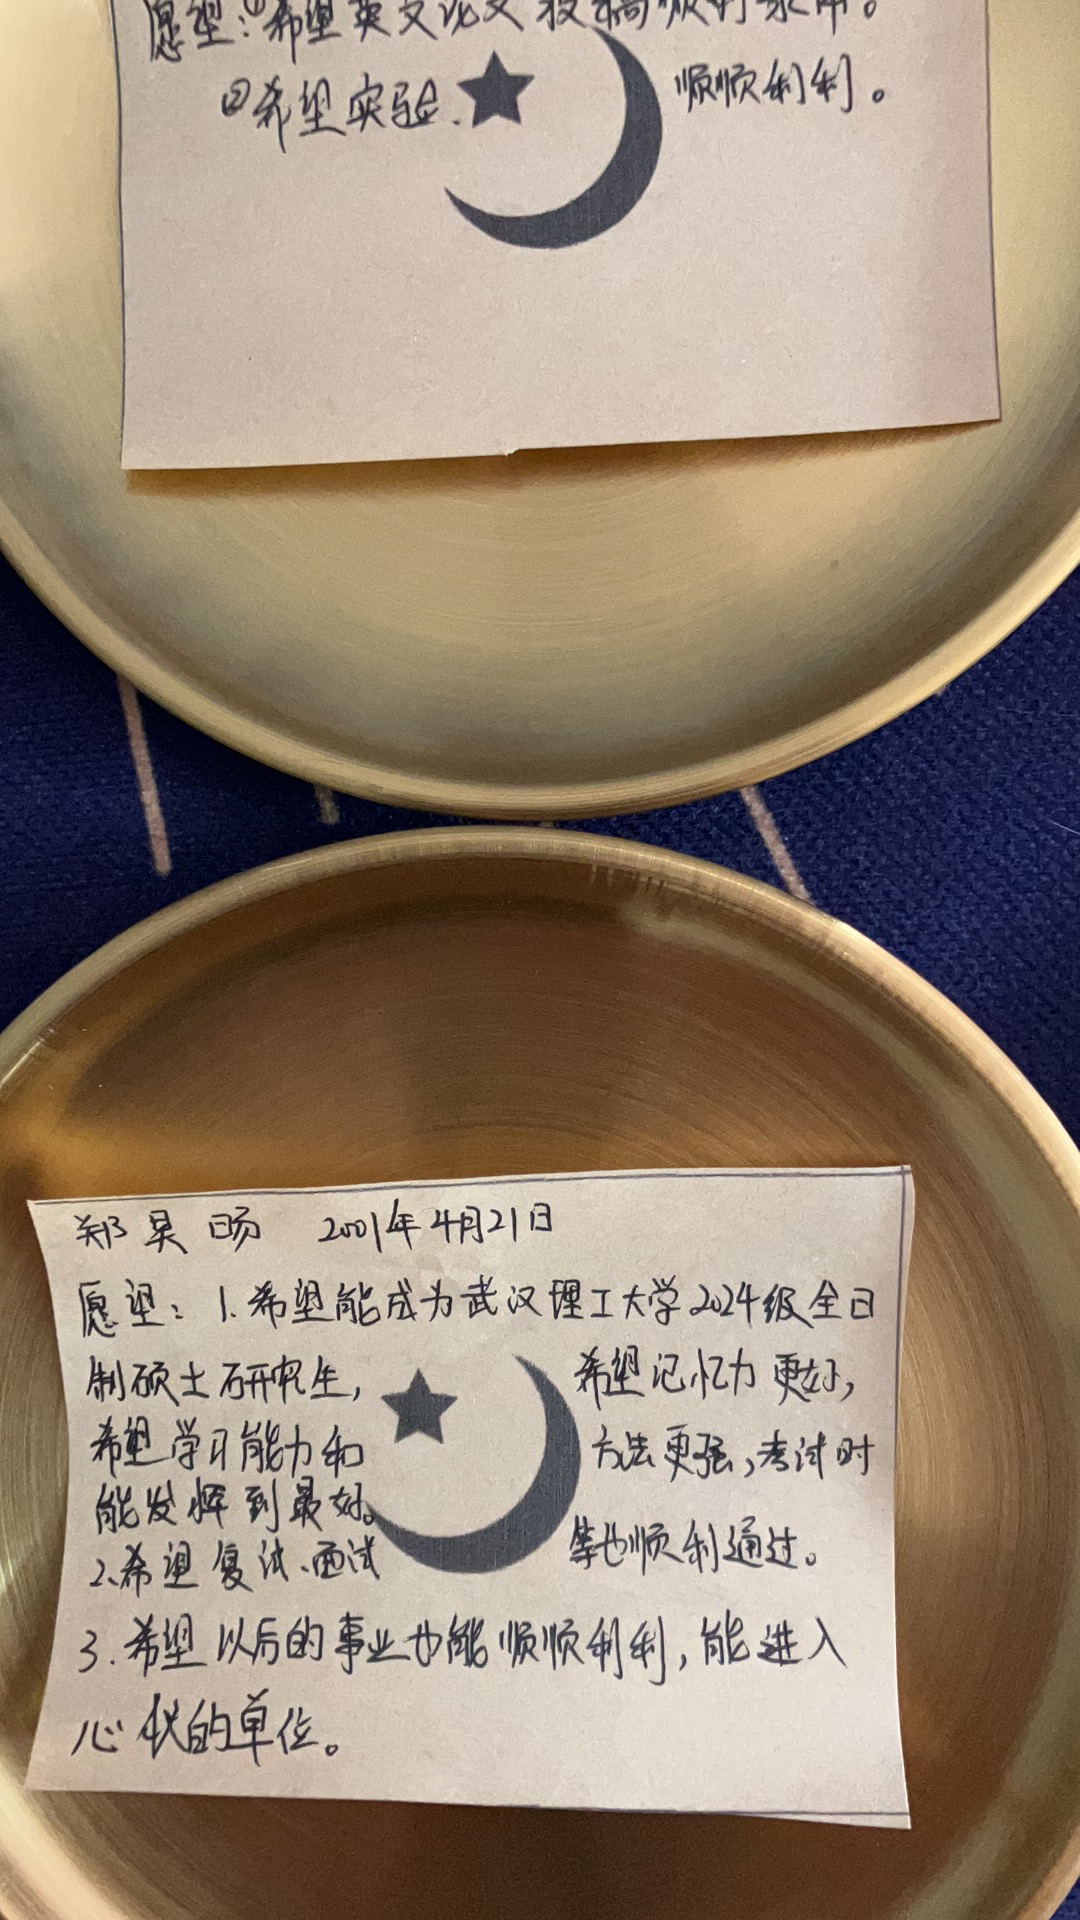 愿望:①希望英文论文投稿顺利录用。
②希望实验. 顺顺利利。
郑昊旸 2001年4月21日
愿望:1.希望能成为武汉理工大学2024级全日
制硕士研究生, 希望记忆力更好,
希望学习能力和 方法更强,考试时
能发挥到最好。
2.希望复试、面试 等也顺利通过。
3.希望以后的事业也能顺顺利利,能进入
心仪的单位。